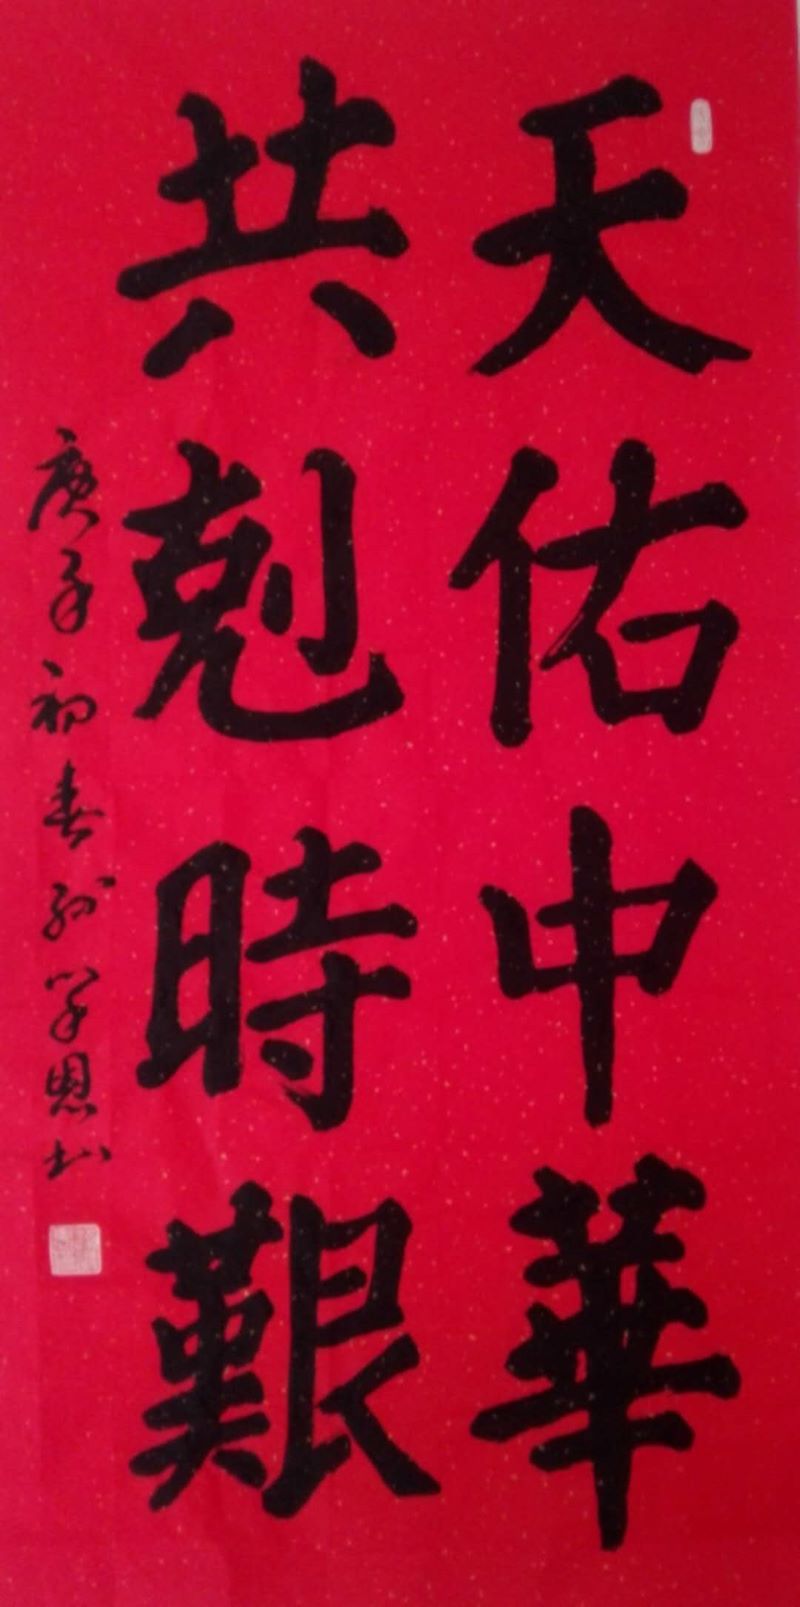 天佑中華
共剋時艱
庚子初春孙学恩书